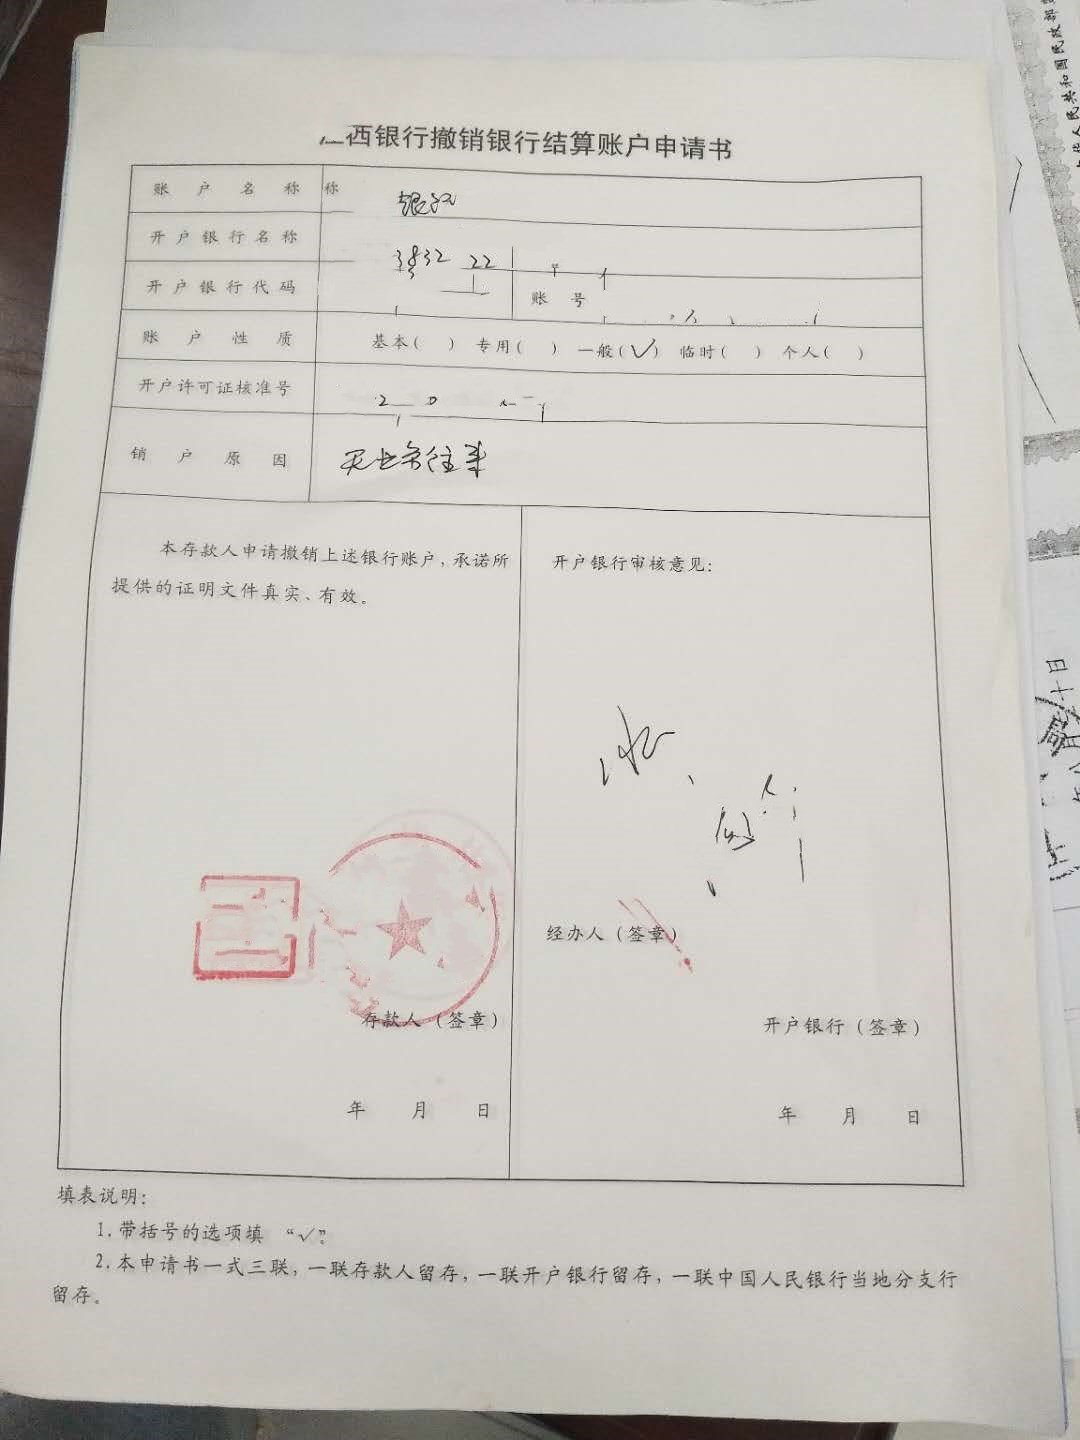 西银行撤销银行结算账户申请书
账户名称 称
银行
开户银行名称
3832 22
开户银行代码 账号
账户性质 基本( ) 专用( ) 一般(√) 临时( ) 个人( )
开户许可证核准号
销户原因 无业务往来
本存款人申请撤销上述银行账户,承诺所
提供的证明文件真实、有效。
存款人(签章)
年 月 日
开户银行审核意见:
经办人(签章)
开户银行(签章)
年 月 日
填表说明:
1.带括号的选项填 “√”。
2.本申请书一式三联,一联存款人留存,一联开户银行留存,一联中国人民银行当地分支行
留存。
人民共和国民政部
十日